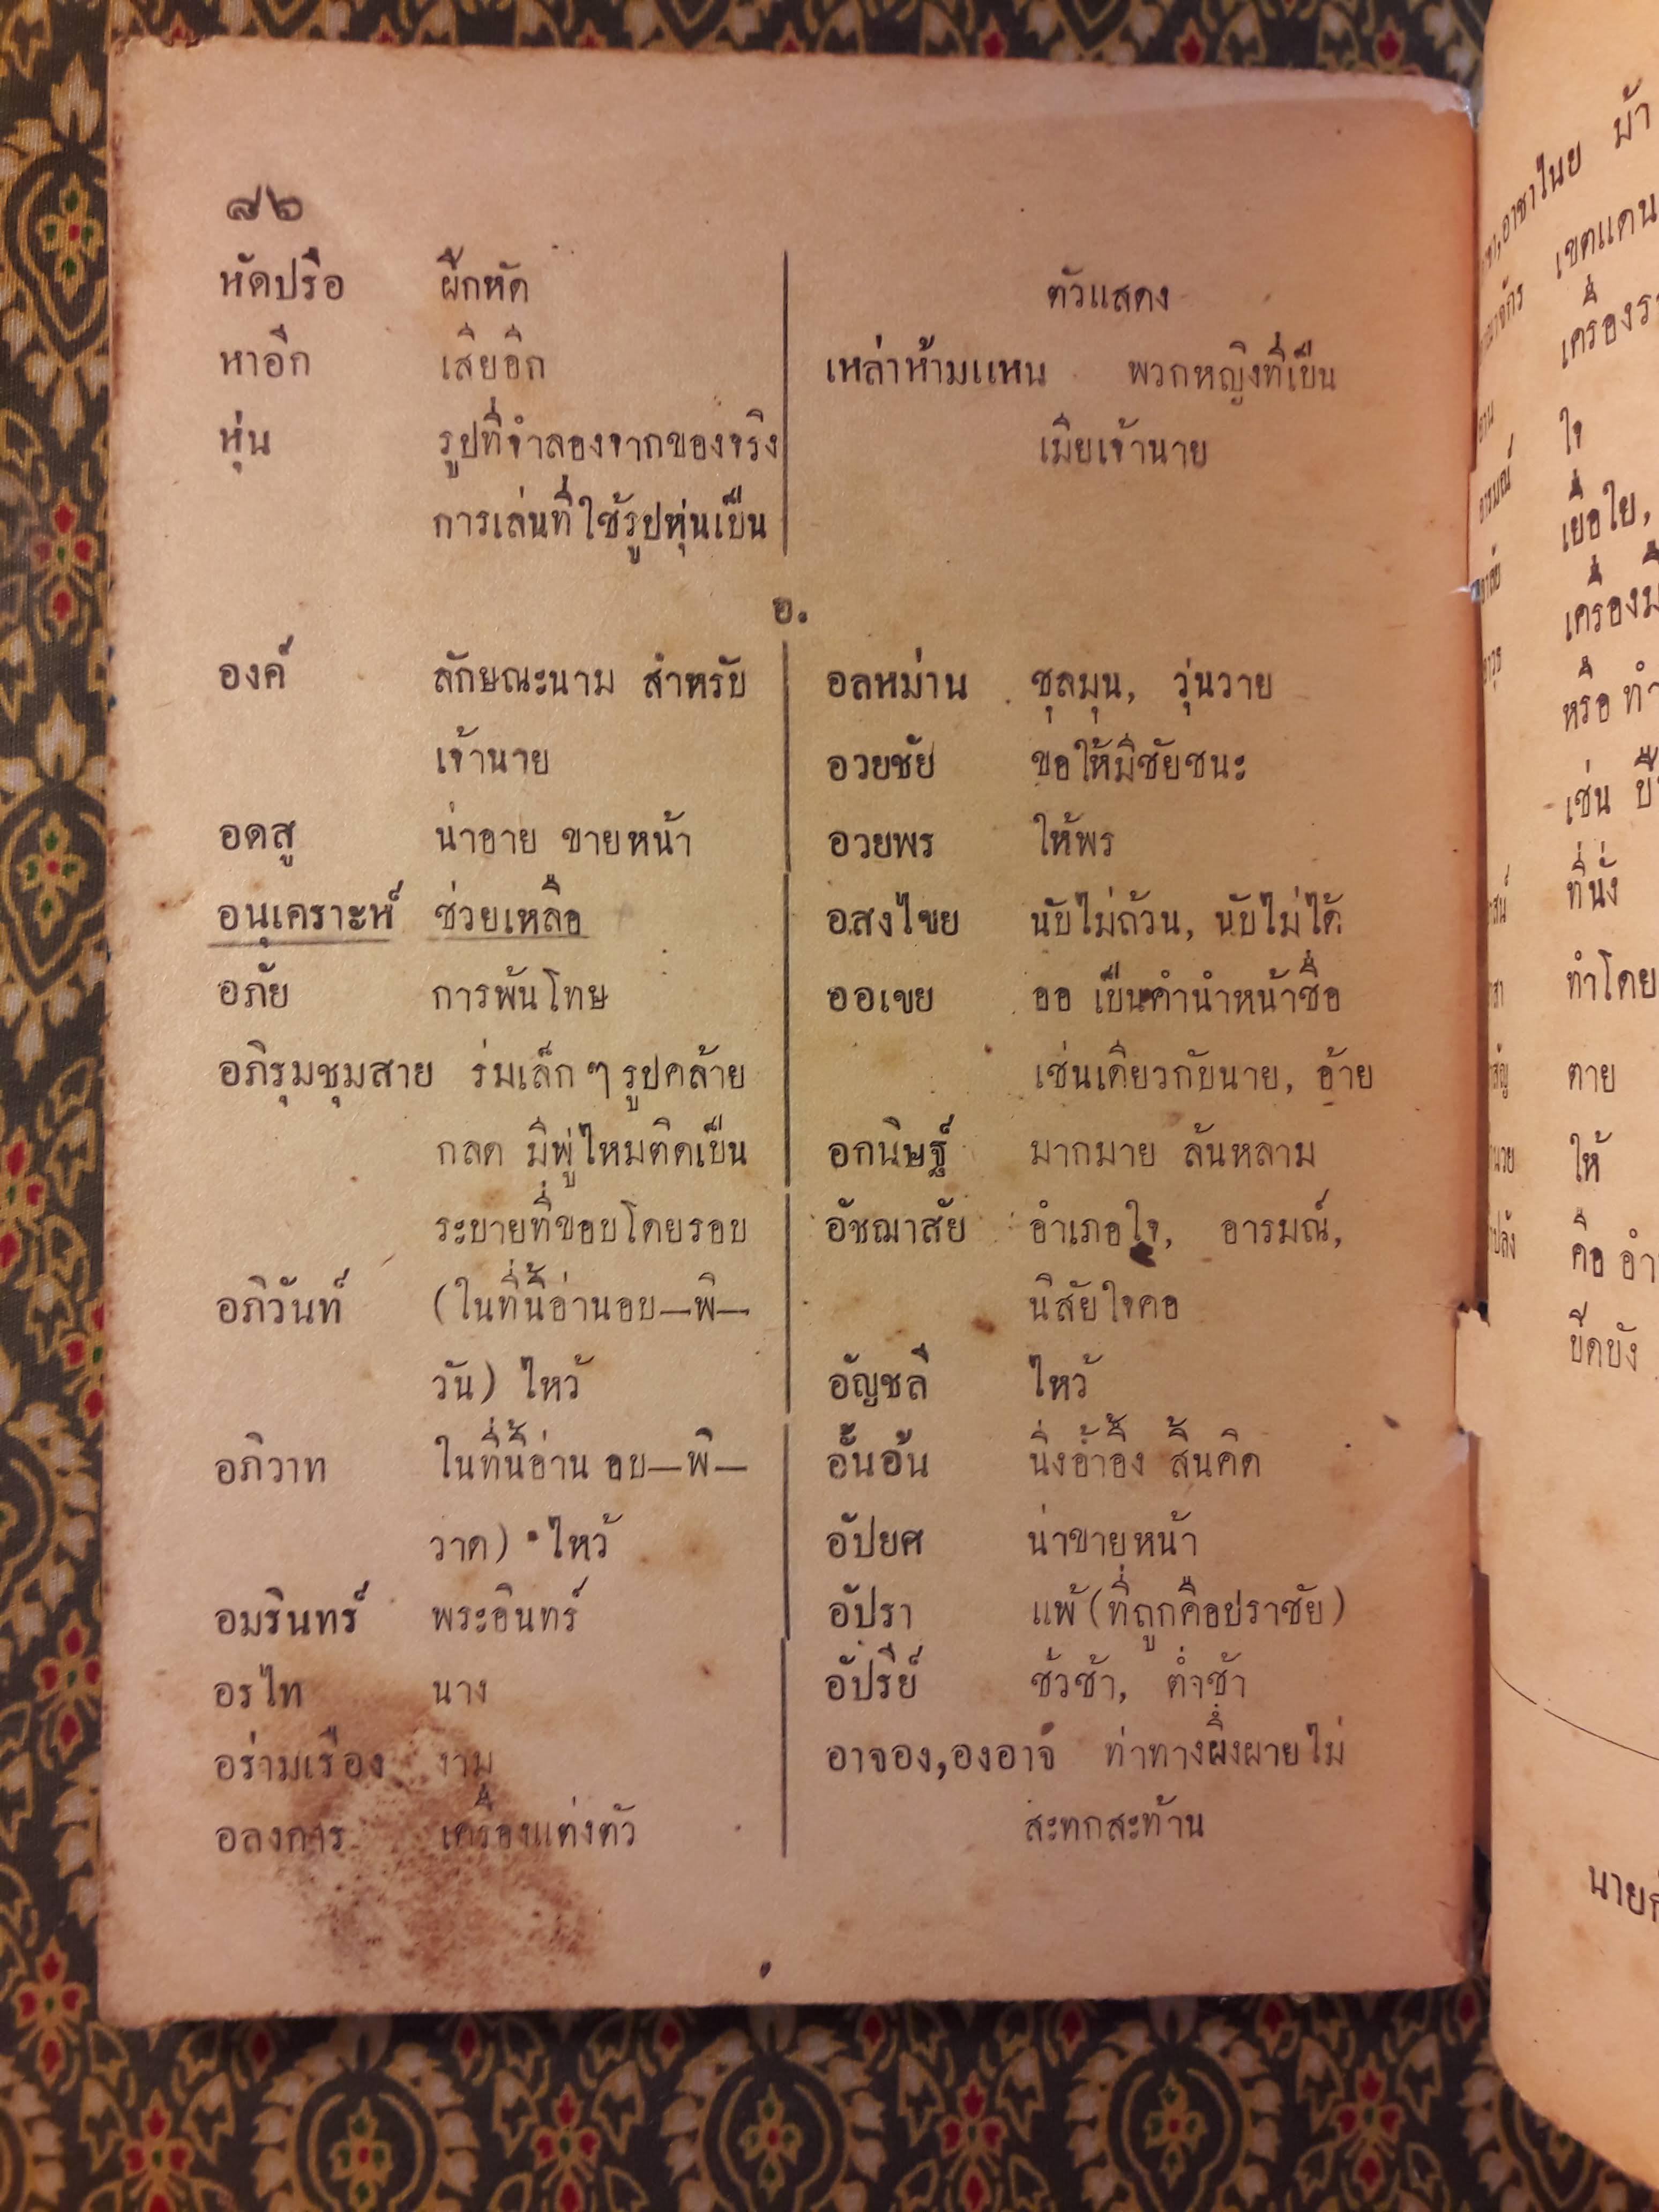 ๘๖
หัดปรือ ฝึกหัด
หาอีก เสียอีก
หุ่น รูปที่จำลองจากของจริง
การเล่นที่ใช้รูปหุ่นเป็น
ตัวแสดง
เหล่าห้ามแหน พวกหญิงที่เป็น
เมียเจ้านาย
อ.
องค์ ลักษณะนาม สำหรับ
เจ้านาย
อดสู น่าอาย ขายหน้า
อนุเคราะห์ ช่วยเหลือ
อภัย การพ้นโทษ
อภิรุมชุมสาย ร่มเล็กๆ รูปคล้าย
กลด มีพู่ไหมติดเป็น
ระบายที่ขอบโดยรอบ
อภิวันท์ (ในที่นี้อ่านอบ—พิ—
วัน) ไหว้
อภิวาท ในที่นี้อ่าน อบ—พิ—
วาด) ไหว้
อมรินทร์ พระอินทร์
อรไท นาง
อร่ามเรือง งาม
อลงการ เครื่องแต่งตัว
อลหม่าน ชุลมุน, วุ่นวาย
อวยชัย ขอให้มีชัยชนะ
อวยพร ให้พร
อสงไขย นับไม่ถ้วน, นับไม่ได้
ออเขย ออ เป็นคำนำหน้าชื่อ
เช่นเดียวกับนาย, อ้าย
อกนิษฐ์ มากมาย ล้นหลาม
อัชฌาสัย อำเภอใจ, อารมณ์,
นิสัยใจคอ
อัญชลี ไหว้
อั้นอ้น นิ่งอ้ำอึ้ง สิ้นคิด
อัปยศ น่าขายหน้า
อัปรา แพ้ (ที่ถูกคือปราชัย)
อัปรีย์ ชั่วช้า, ต่ำช้า
อาจอง,องอาจ ท่าทางผึ่งผายไม่
สะทกสะท้าน
อาชาไนย ม้า
เขตแดน
ใจ
เยื่อใย,
หรือ ทำ
เช่น
ที่นั่ง
ทำโดย
ตาย
ให้
คือ
ปิดบัง